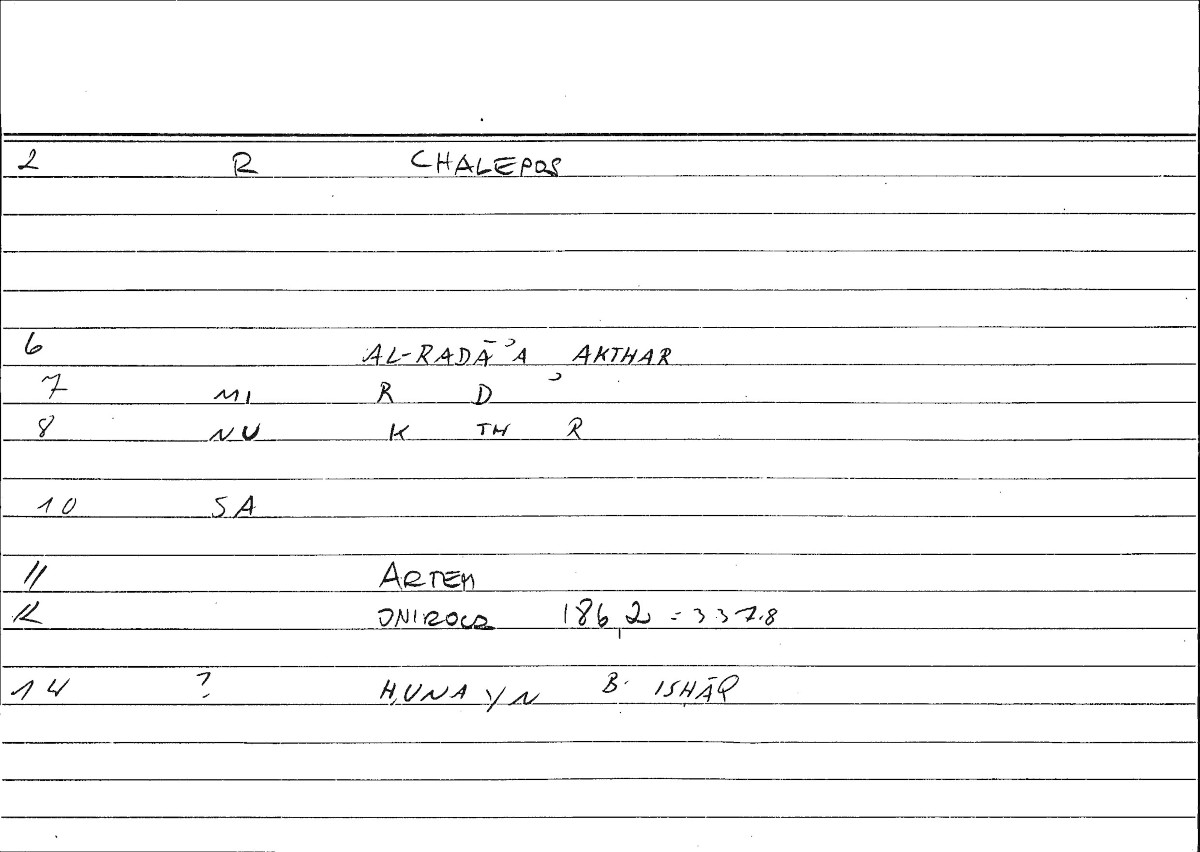 2 R CHALEPOS
6 AL-RADĀʾA AKTHAR
7 MI R D ʾ
8 NU K TH R
10 SA
11 ARTEM
12 ONIROCR 186,2 = 337.8
14 ? ḤUNAYN B. ISḤĀQ